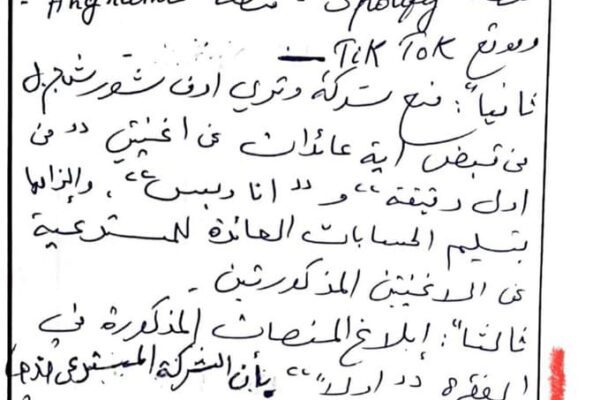 Anghami - منصة Spotify -
وموقع TiK ToK —
ثانياً: منع شركة وتري اوف شور ش.م.ل
من قبض اية عائدات عن اغنيتي " من
اول دقيقة " و " انا وبس "، والزامها
بتسليم الحسابات العائدة للمستدعية
عن الاغنيتين المذكورتين -
ثالثاً: إبلاغ المنصات المذكورة في
الفقرة " اولاً " بأن الشركة المستدعى ضدها